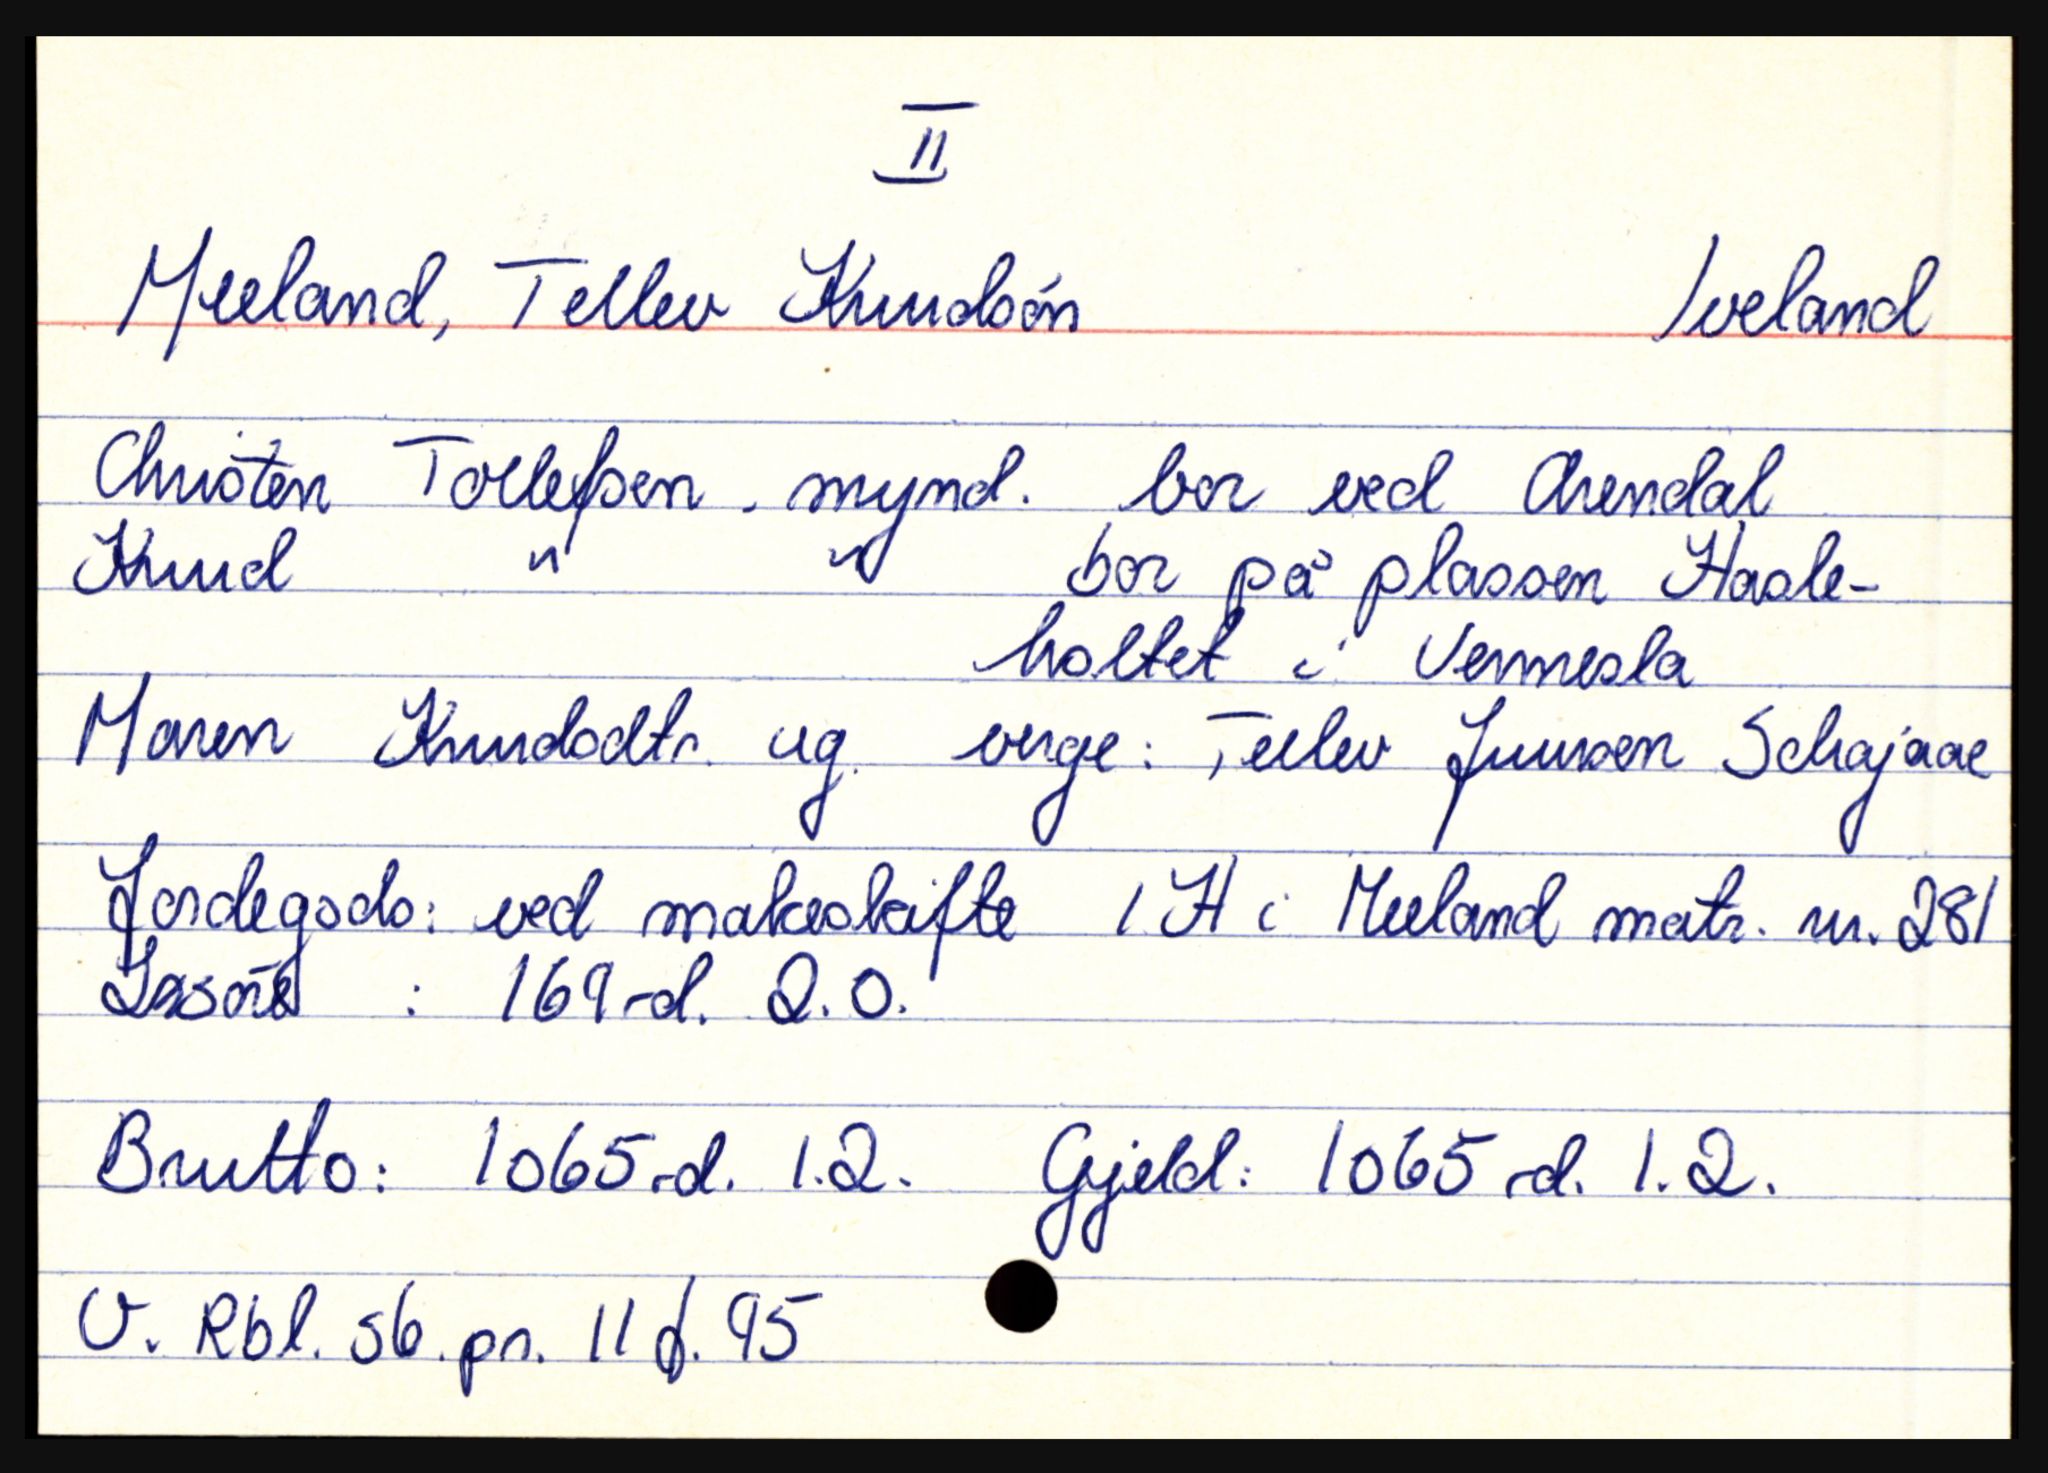 II
Meeland, Tellev Knudsøn Iveland
Christen Tollefsen. mynd. bor ved Arendal
Knud " " bor på plassen Hasle-
holtet i Vennesla
Maren Knudsdtr. ug. verge: Tellev Juursen Schajaae
Jordegods: ved makeskifte 1 H i Meeland matr. nr. 281
Løsøre : 169 rd. 2.0.
Brutto: 1065 rd. 1.2. Gjeld: 1065 rd. 1.2.
V. Rbl. sb. pr. 11 f. 95